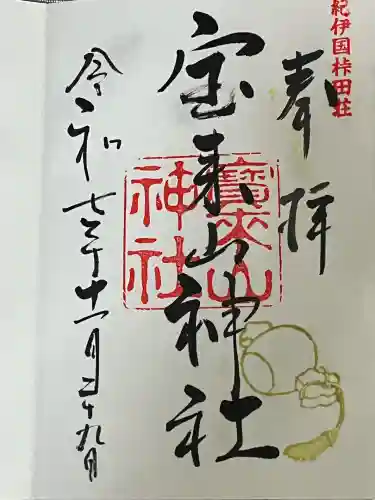 紀伊国桛田荘
奉拝
宝来山神社
寳来山
神社
令和七年十一月二十九日